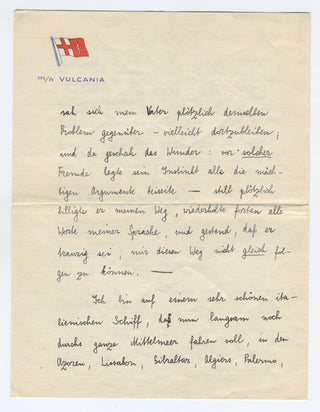 m/n VULCANIA
sah sich mein Vater plötzlich demselben
Problem gegenüber – vielleicht dortzubleiben;
und da geschah das Wunder: vor solcher
Fremde legte sein Instinkt alle die mäch-
tigen Argumente beiseite – still plötzlich
billigte er meinen Weg, wiederholte fortan alle
Worte meiner Sprache, und gestand, daß er
traurig sei, mir diesen Weg nicht gleich fol-
gen zu können. —
Ich bin auf einem sehr schönen ita-
lienischen Schiff, das nun langsam noch
durchs ganze Mittelmeer fahren soll, in den
Azoren, Lissabon, Gibraltar, Algiers, Palermo,